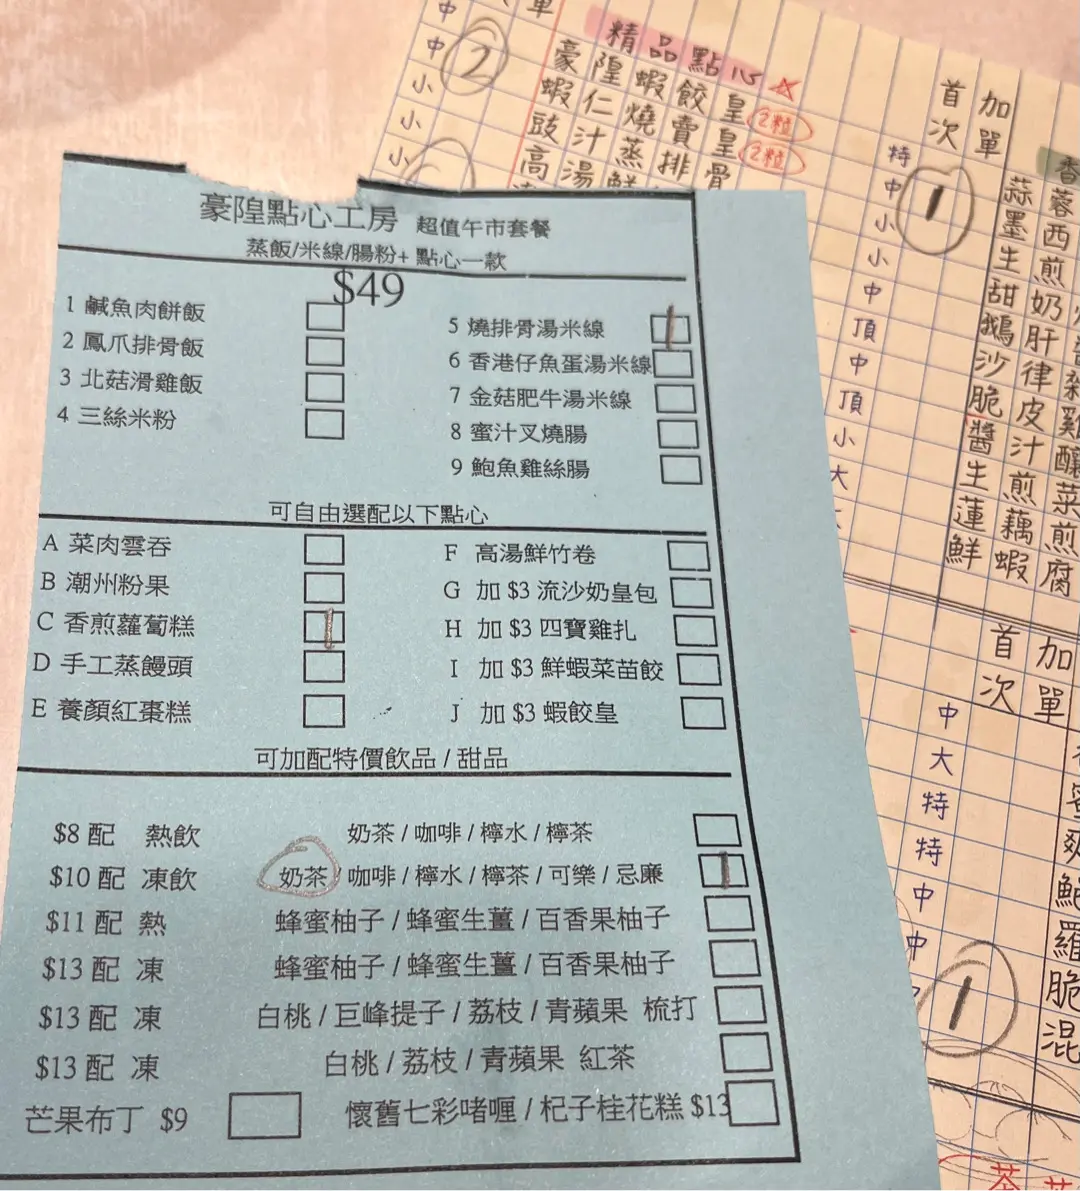 豪隍點心工房 超值午市套餐
蒸飯/米線/腸粉+ 點心一款
$49
1 鹹魚肉餅飯
2 鳳爪排骨飯
3 北菇滑雞飯
4 三絲米粉
5 燒排骨湯米線
6 香港仔魚蛋湯米線
7 金菇肥牛湯米線
8 蜜汁叉燒腸
9 鮑魚雞絲腸
可自由選配以下點心
A 菜肉雲吞
B 潮州粉果
C 香煎蘿蔔糕
D 手工蒸饅頭
E 養顏紅棗糕
F 高湯鮮竹卷
G 加 $3 流沙奶皇包
H 加 $3 四寶雞扎
I 加 $3 鮮蝦菜苗餃
J 加 $3 蝦餃皇
可加配特價飲品 / 甜品
$8 配 熱飲 奶茶 / 咖啡 / 檸水 / 檸茶
$10 配 凍飲 奶茶 / 咖啡 / 檸水 / 檸茶 / 可樂 / 忌廉
$11 配 熱 蜂蜜柚子 / 蜂蜜生薑 / 百香果柚子
$13 配 凍 蜂蜜柚子 / 蜂蜜生薑 / 百香果柚子
$13 配 凍 白桃 / 巨峰提子 / 荔枝 / 青蘋果 梳打
$13 配 凍 白桃 / 荔枝 / 青蘋果 紅茶
芒果布丁 $9 懷舊七彩啫喱 / 杞子桂花糕 $13
精品點心
豪隍蝦餃皇 2粒
蝦仁燒賣皇 2粒
豉汁蒸排骨
高湯鮮
中
中
小
小
小
2
單
首次
加單
特
中
小
小
中
頂
中
頂
小
大
1
香
蒜蓉
墨西
生煎
甜奶
鵝肝
沙律
脆皮
醬汁
生煎
蓮藕
鮮蝦
雞
釀
菜
煎
腐
首次
加單
中
大
特
特
中
中
1
鮑
羅
脆
混
茶